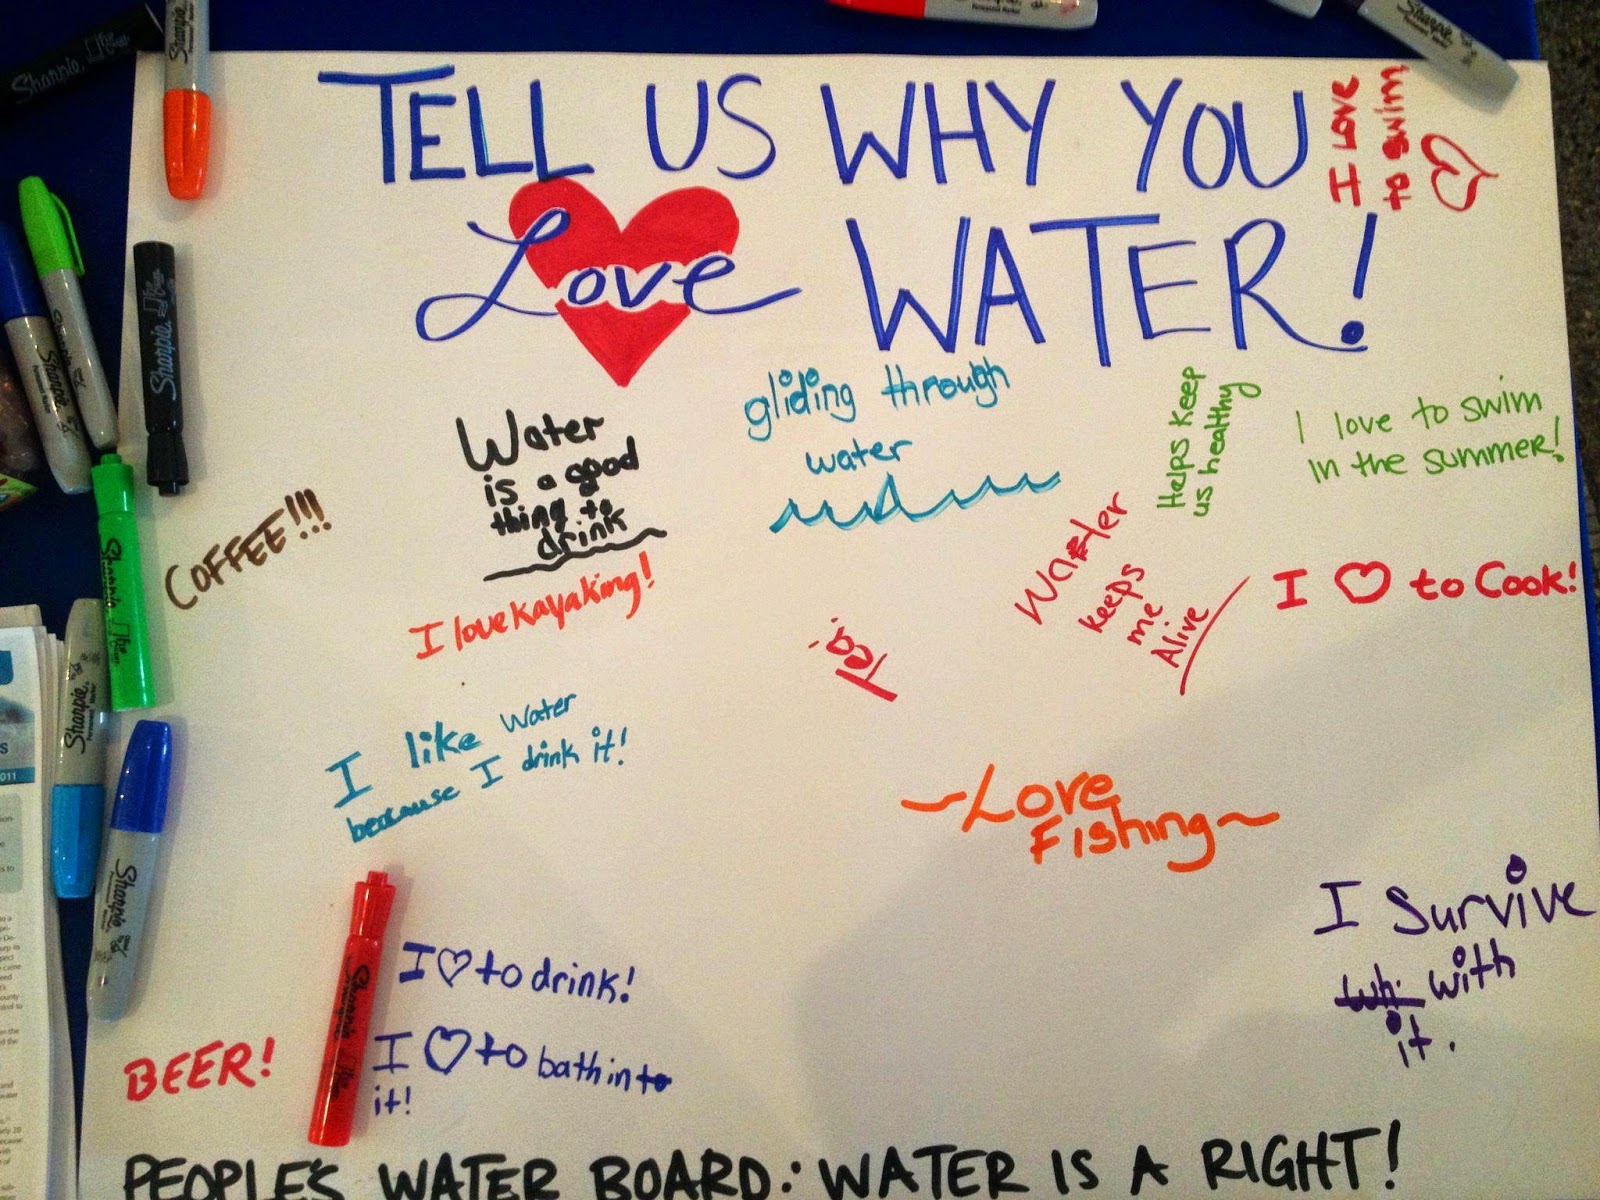 TELL US WHY YOU
Love WATER!
I LOVE
to swim
gliding through
water
Water
is a good
thing to
drink
COFFEE!!!
I love kayaking!
Helps keep
us healthy
I love to swim
in the summer!
Water
keeps
me
Alive
I ♡ to Cook!
Tea!
I like water
because I drink it!
~Love
Fishing~
I Survive
with
it.
I ♡ to drink!
I ♡ to bath in
it!
BEER!
PEOPLE'S WATER BOARD: WATER IS A RIGHT!
Sharpie
Sharpie
Sharpie
Sharpie
Sharpie
Sharpie
Sharpie
2011